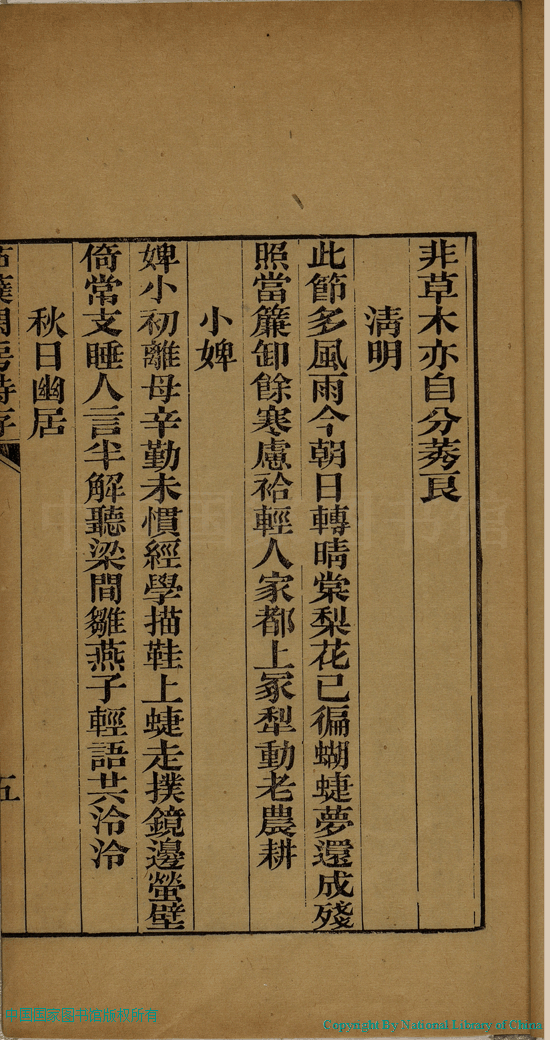 非草木亦自分莠良
清明
此節多風雨今朝日轉晴棠梨花已徧蝴蜨夢還成殘
照當簾卸餘寒慮袷輕人家都上冢犁動老農耕
小婢
婢小初離母辛勤未慣經學描鞋上蜨走撲鏡邊螢壁
倚常支睡人言半解聽梁間雛燕子輕語共泠泠
秋日幽居
五
中国国家图书馆
中国国家图书馆版权所有
Copyright By National Library of China